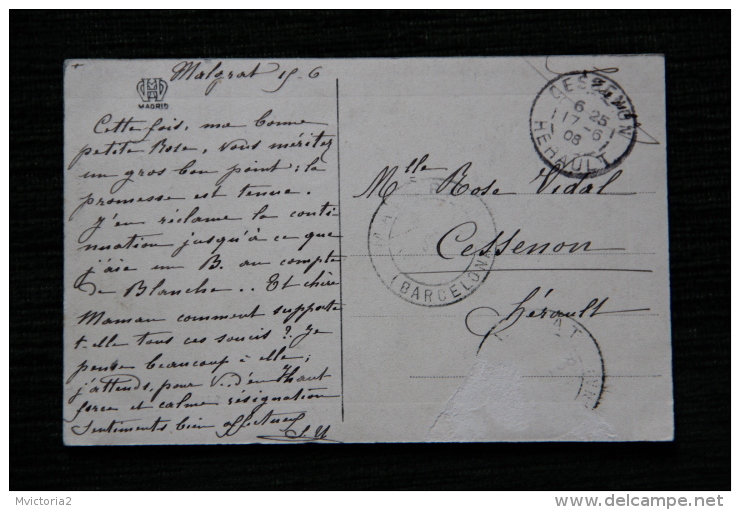 Malgrat 15-6
MADRID
Cette fois, ma bonne
petite Rose, vous méritez
un gros bon point : la
promesse est tenue.
J'en réclame la conti
nuation jusqu'à ce que
j'aie un B. au compte
de Blanche.. Et chère
Maman comment supporte
t-elle tous ces soucis ? Je
pense beaucoup à elle ;
j'attends, pour V.. d'en Haut
force et calme résignation
Sentiments bien affectueux
CESSENON
6 25
17-6
08
HERAULT
Mlle Rose Vidal
Cessenon
Hérault
(BARCELONA
AT
Mvictoria2
www.delcampe.net